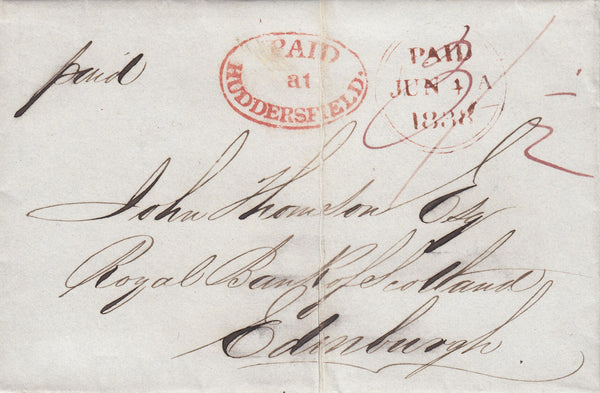 paid
PAID
at
HUDDERSFIELD.
PAID
JUN 4 A
1838
John Thomson Esq
Royal Bank of Scotland
Edinburgh